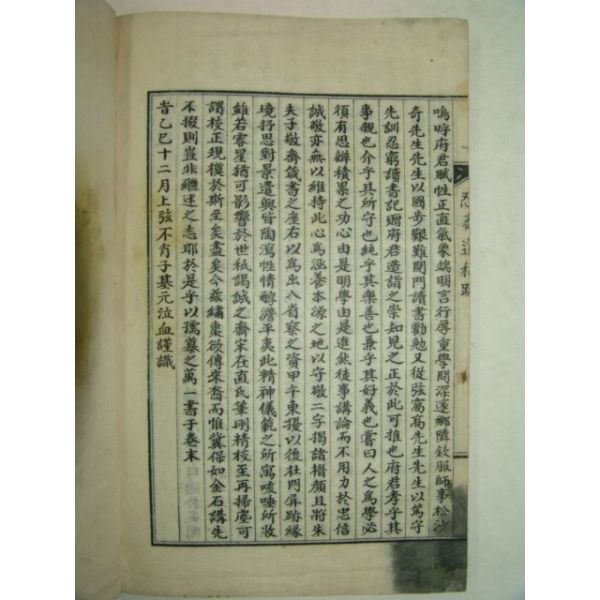 嗚呼府君賦性正直氣象端明言行厚重學問深邃鄉隣欽服師事松沙
奇先生先生以國步艱難閉門讀書勸勉又從弦窩高先生先生以篤守
先訓忍窮讀書記贈府君造詣之崇知見之正於此可推也府君孝乎其
事親也介乎其所守也純乎其樂善也兼乎其好義也嘗曰人之爲學必
須有思辨積累之功心由是明學由是進然徒事講論而不用力於忠信
誠敬亦無以維持此心爲涵養本源之地以守敬二字揭諸楣顔且將朱
夫子敬齋箴書之座右以爲出入省察之資甲午東擾以後杜門屛跡緣
境抒思對景遣興皆陶瀉性情醇澹平夷此精神儀範之所寓咳唾所收
雖若零星猶可影響於世秪謁誠之齋宋在直氏筆刪精校至再掃塵可
謂校正現模於斯至矣盡矣今玆繡棗欲傳來裔而惟冀保如金石講先
不掇則豈非繼述之志耶於是乎以孺慕之萬一書于卷末
旹乙巳十二月上弦不肖子基元泣血謹識
忍齋遺稿跋